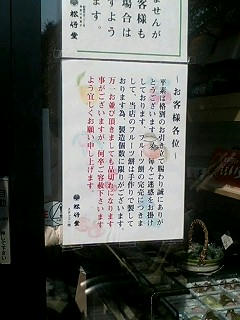 ませんが
客様も
場合は
すよう
ます。
松竹堂
～お客様各位～
平素は格別のお引き立て賜わり誠にありが
とうございます。又、毎々ご迷惑をお掛け
しております、フルーツ餅の完売につきま
して、当店のフルーツ餅は手作りで製して
おります為、製造個数に限りがございます。
万一お並び頂きましても品切れになります
事がございますが、何卒ご容赦下さいます
よう宜しくお願い申し上げます。
松竹堂